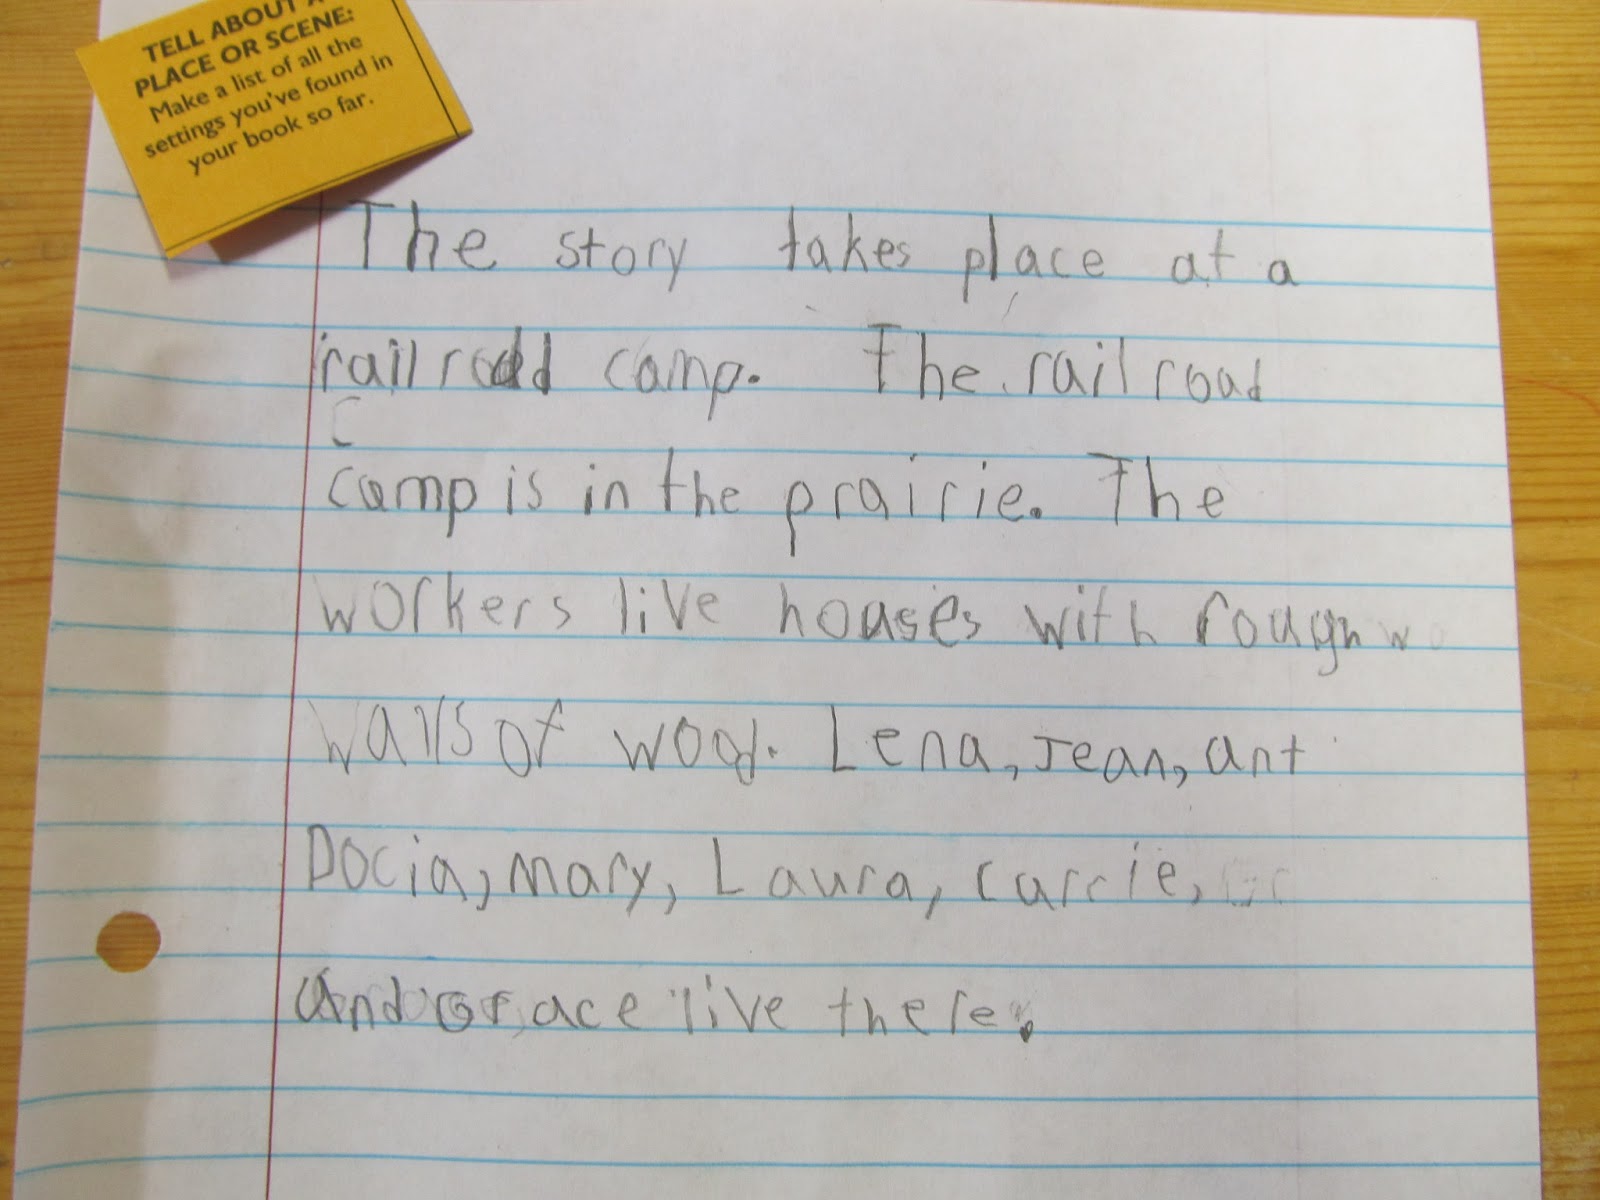 TELL ABOUT A
PLACE OR SCENE:
Make a list of all the
settings you've found in
your book so far.
The story takes place at a
railroad camp. The railroad
camp is in the prairie. The
workers live houses with rough
walls of wood. Lena, Jean, ant
Docia, Mary, Laura, Carrie,
and Grace live there.